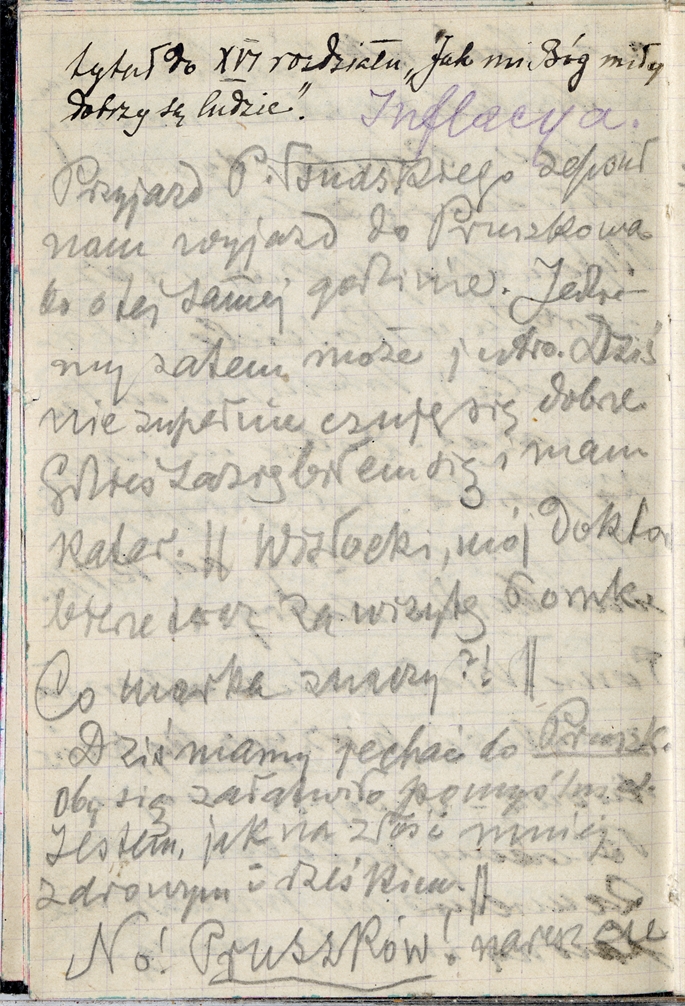 tytuł do XVI rozdziału „Jak mi Bóg miły
dobrzy są ludzie”.
Inflacya.
Przyjazd Piłsudskiego zepsuł
nam wyjazd do Pruszkowa
bo o tej samej godzinie. Jedzie-
my zatem może jutro. Dziś
nie zupełnie czuję się dobrze
Gdzieś zaziębiłem się i mam
katar. || Wisłocki, mój dokto
bierze teraz za wizytę
Co marka znaczy?! ||
Dziś mamy jechać do Pruszk.
oby się załatwiło pomyślnie.
Jestem, jak na złość mniej
zdrowym i rześkim. ||
No! Pruszków! nareszcie